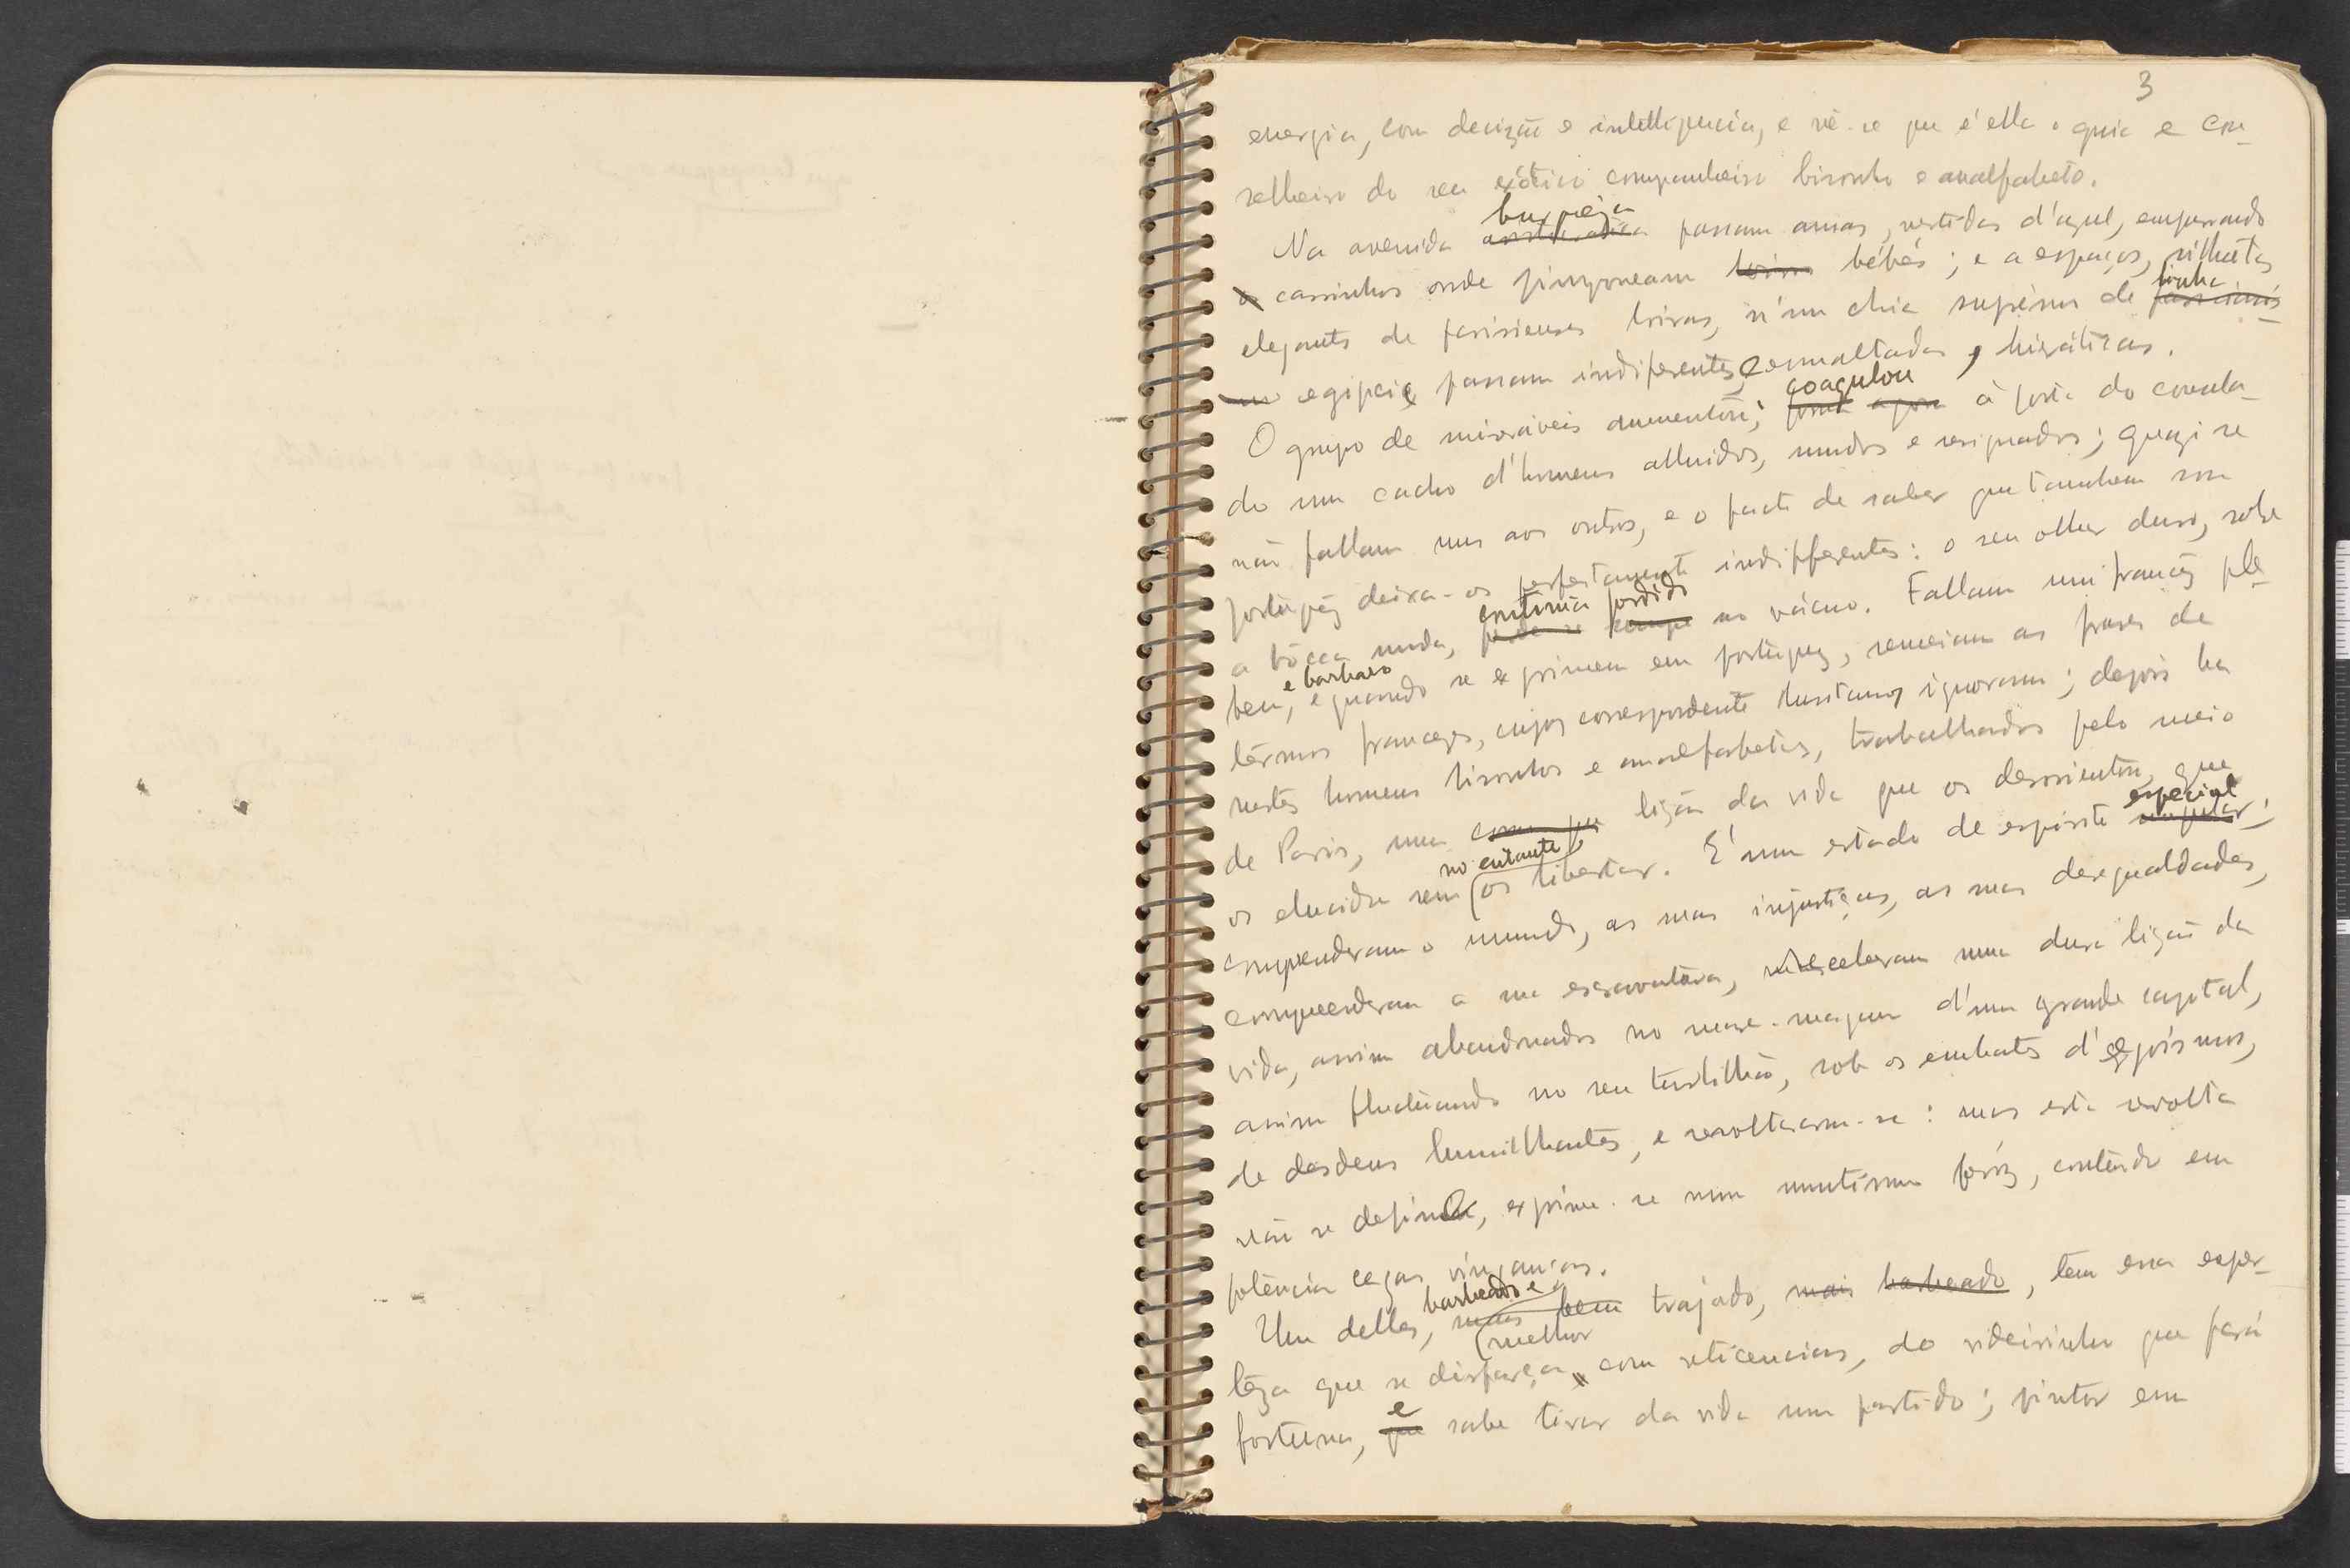 3
energia, com decizão e intelligencia, e vê-se que é ella o guia e con-
selheiro do seu exótico companheiro bisonho e analfabeto.
burguêza
Na avenida aristocratica passam amas, vestidas d'azul, empurrando
os carrinhos onde pimponeam loiros bébés; e a espaços, silhuetas
linha
elegantes de parisienses loiras, n'um chic suprêmo de
egipcia passam indiferentes, esmaltadas, hieráticas.
coagulou
O grupo de miseráveis aumentou; forma agora à porta do consula-
do um cacho d'homens alluidos, mudos e resignados; quazi se
não fallam uns aos outros, e o facto de saber que tambem sou
portuguêz deixa-os perfeitamente indifferentes: o seu olhar duro, sobre
continúa perdido
a bôcca muda, perde-se sempre no vácuo. Fallam um francêz ple-
e barbaro
beu, e quando se exprimem em portuguez, semeiam as frases de
têrmos francezes, cujos correspondente lusitanos ignoram; depois ha
nestes homens bisonhos e analfabetos, trabalhados pelo meio
de Paris, uma como que lição da vida que os desorientou, que
especial
no entanto
os elucidou sem os libertar. É um estado de espirito singular;
comprenderam o mundo, as suas injustiças, as suas desegualdades,
compreenderam a sua escravatura, receberam uma dura lição da
vida, assim abandonados no mare-magnum d'uma grande capital,
assim fluctuando no seu turbilhão, sob os embates d'egoísmos,
de desdens humilhantes, e revoltaram-se: mas esta revolta
não se define, exprime-se num mutismo feróz, contendo em
potência cegas vinganças.
barbeado e
Um delles, mais bem trajado, mais barbeado, tem essa esper-
melhor
têza que se disfarça, com reticencias, do videirinho que fará
e
fortuna, que sabe tirar da vida um partido; pintor em